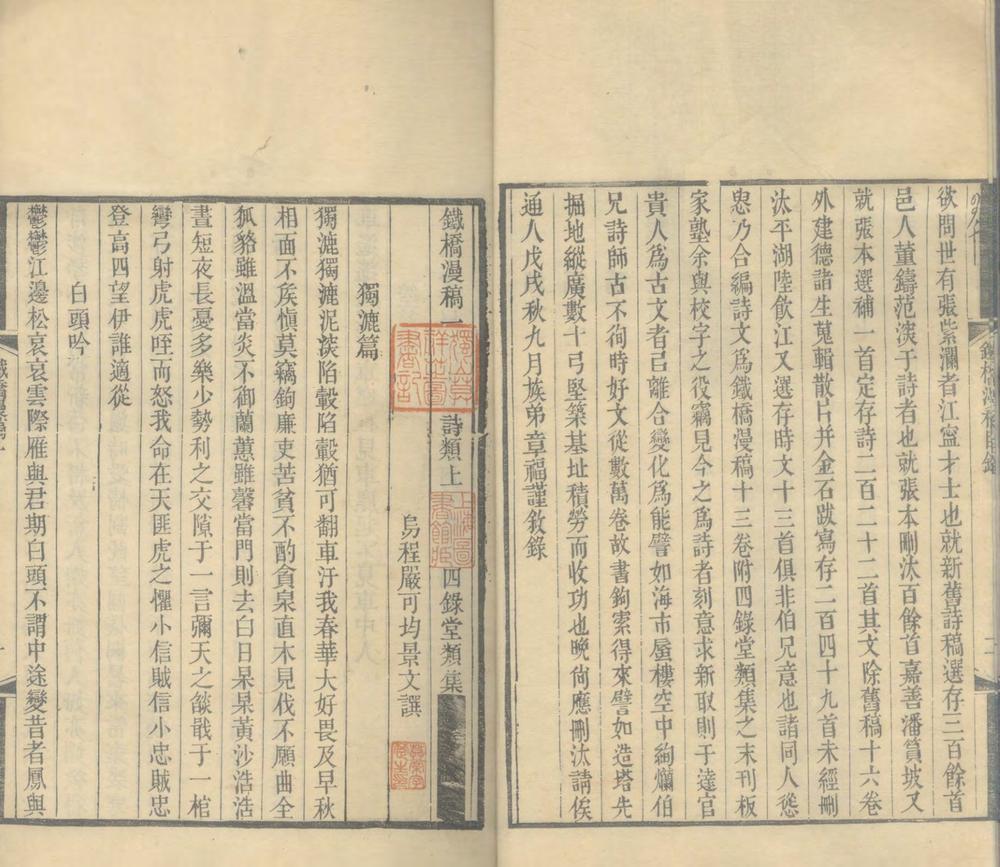 欲問世有張紫瀾者江寧才士也就新舊詩稿選存三百餘首
邑人董鑄范淡于詩者也就張本刪汰百餘首嘉善潘篔坡又
就張本選補一首定存詩二百二十二首其文除舊稿十六卷
外建德諸生蒐輯散片并金石跋寫存二百四十九首未經刪
汰平湖陸飲江又選存時文十三首俱非伯兄意也諸同人慫
恿乃合編詩文爲鐵橋漫稿十三卷附四錄堂類集之末刊板
家塾余與校字之役竊見今之爲詩者刻意求新取則于達官
貴人爲古文者已離合變化爲能譬如海市蜃樓空中絢爛伯
兄詩師古不徇時好文從數萬卷故書鉤索得來譬如造塔先
掘地縱廣數十弓堅築基址積勞而收功也晚尙應刪汰請俟
通人戊戌秋九月族弟章福謹敘錄
鐵橋漫稿目錄
鐵橋漫稿一 詩類上 四錄堂類集
烏程嚴可均景文譔
獨漉篇
獨漉獨漉泥淡陷轂陷轂猶可翻車汙我春華大好畏及早秋
相面不矦愼莫竊鉤廉吏苦貧不酌貪泉直木見伐不願曲全
狐貉雖溫當炎不御蘭蕙雖馨當門則去白日杲杲黃沙浩浩
晝短夜長憂多樂少勢利之交隙于一言彌天之燄戢于一棺
彎弓射虎虎咥而怒我命在天匪虎之懼小信賊信小忠賊忠
登高四望伊誰適從
白頭吟
鬱鬱江邊松哀哀雲際雁與君期白頭不謂中途變昔者鳳與